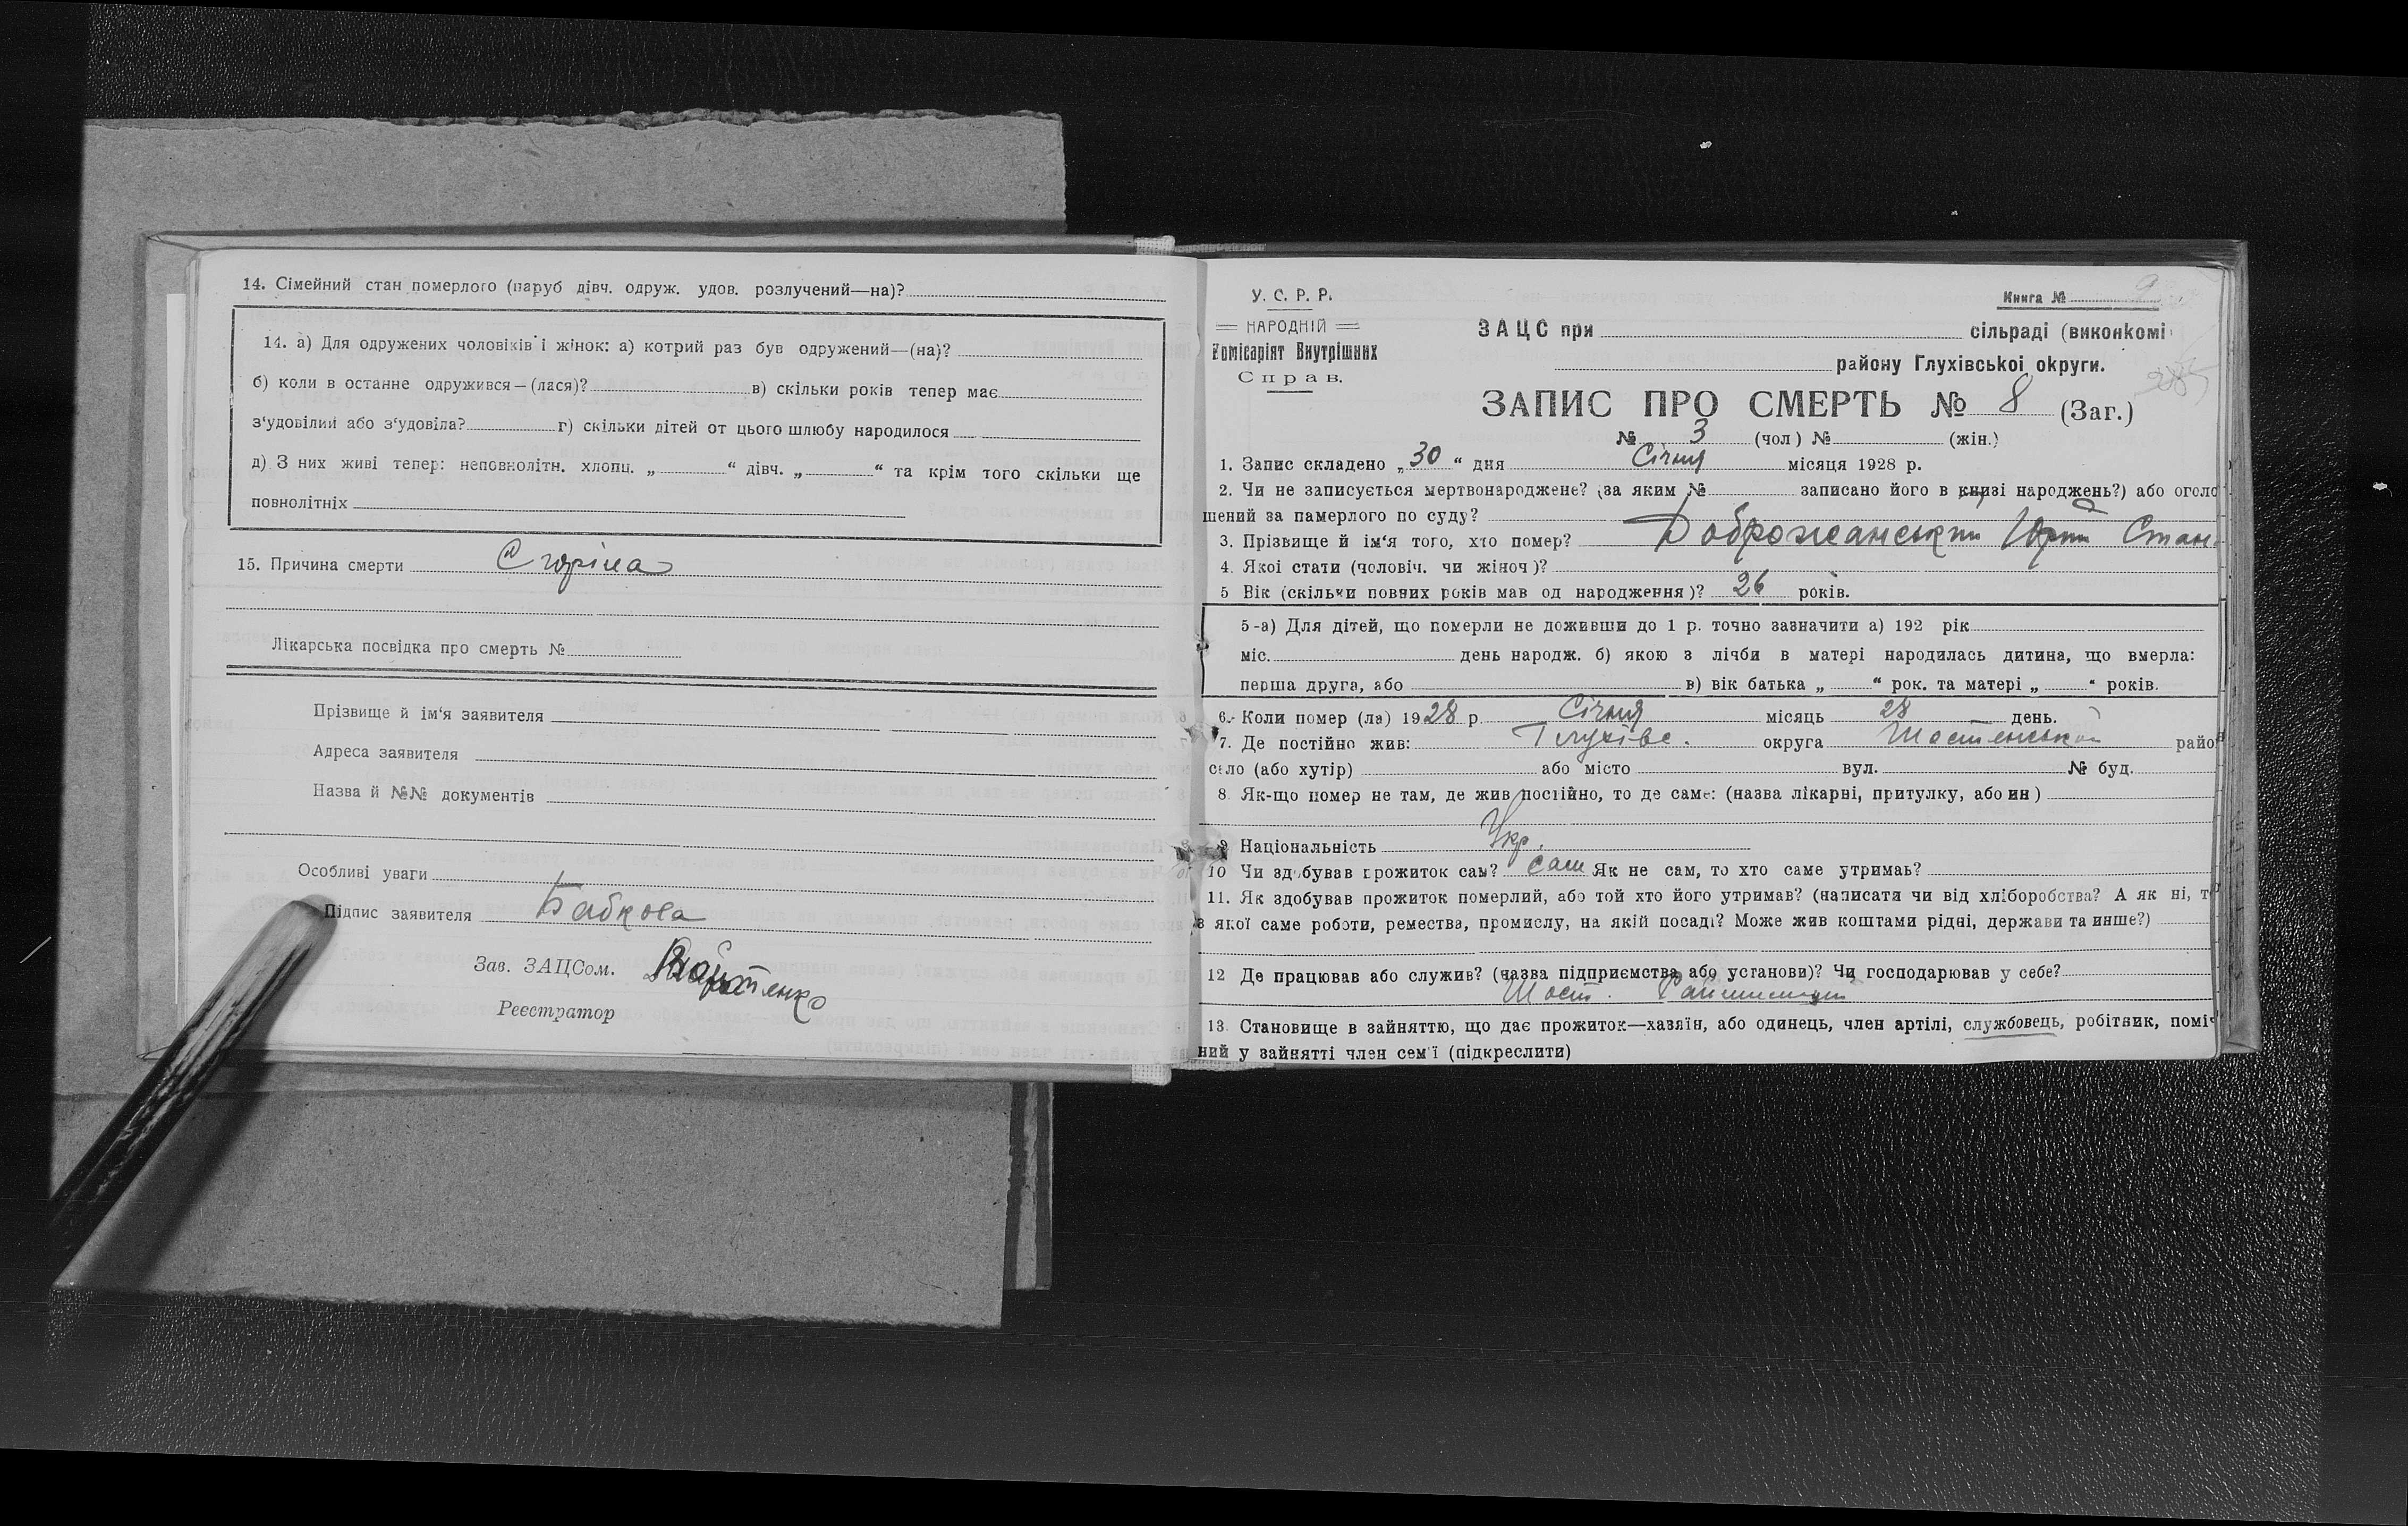 14. Сімейний стан померлого (паруб дівч. одруж. удов. розлучений—на)?
14. а) Для одружених чоловіків і жінок: а) котрий раз був одружений—(на)?
б) коли в останне одружився—(лася)? в) скільки років тепер має
з'удовілий або з'удовіла? г) скільки дітей от цього шлюбу народилося
д) З них живі тепер: неповнолітн. хлопц. „ “ дівч. „ “ та крім того скільки ще
повнолітніх
15. Причина смерти Згоріла
Лікарська посвідка про смерть №
Прізвище й ім'я заявителя
Адреса заявителя
Назва й №№ документів
Особливі уваги
Підпис заявителя Бабкова
Зав. ЗАЦСом.
Реєстратор
У. С. Р. Р.
НАРОДНІЙ
Комісаріят Внутрішних
Справ.
Книга № 9
ЗАЦС при сільраді (виконкомі
району Глухівської округи.
ЗАПИС ПРО СМЕРТЬ № 8 (Заг.)
№ 3 (чол) № (жін.)
1. Запис складено „30“ дня Січня місяця 1928 р.
2. Чи не записується мертвонароджене? (за яким № записано його в книзі народжень?) або оголо
шений за памерлого по суду?
3. Прізвище й ім'я того, хто помер? Доброжанський Юрий Стан.
4. Якої стати (чоловіч. чи жіноч)?
5 Вік (скільки повних років мав од народження)? 26 років.
5-а) Для дітей, що померли не доживши до 1 р. точно зазначити а) 192 рік
міс. день народж. б) якою з лічби в матері народилась дитина, що вмерла:
перша друга, або в) вік батька „ “ рок. та матері „ “ років.
6. Коли помер (ла) 1928 р. Січня місяць 28 день.
7. Де постійно жив: Глухівс. округа Шостенський райо
село (або хутір) або місто вул. № буд.
8. Як-що помер не там, де жив постійно, то де саме: (назва лікарні, притулку, або ин)
9 Національність Укр.
10 Чи здобував прожиток сам? сам Як не сам, то хто саме утримав?
11. Як здобував прожиток померлий, або той хто його утримав? (написати чи від хліборобства? А як ні, т
з якої саме роботи, ремества, промислу, на якій посаді? Може жив коштами рідні, держави та инше?)
12 Де працював або служив? (назва підприємства або установи)? Чи господарював у себе?
Шост.
13. Становище в зайняттю, що дає прожиток—хазяїн, або одинець, член артілі, службовець, робітник, поміч
ний у зайнятті член сем'ї (підкреслити)